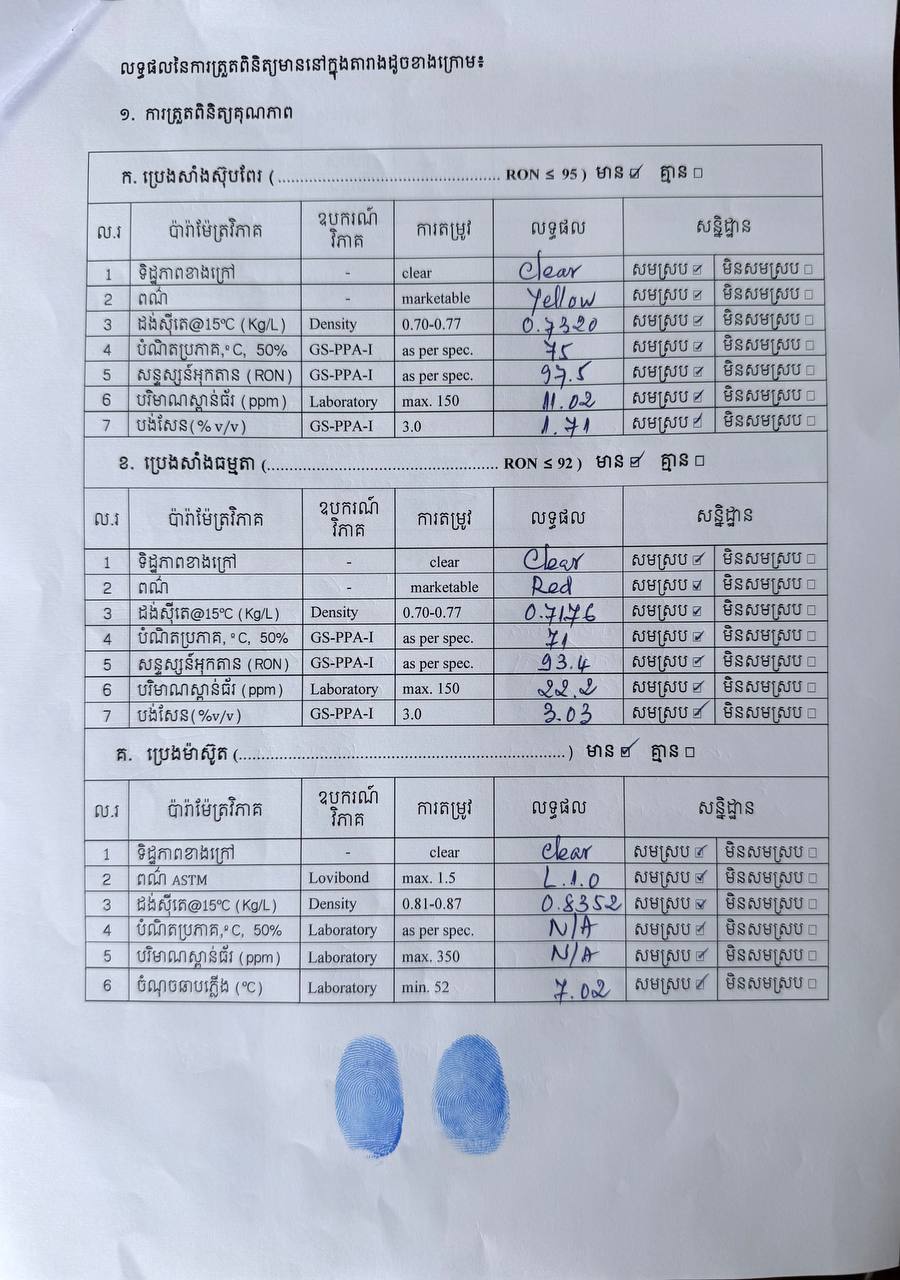 លទ្ធផលនៃការត្រួតពិនិត្យមាននៅក្នុងតារាងដូចខាងក្រោម៖
១. ការត្រួតពិនិត្យគុណភាព
ក. ប្រេងសាំងស៊ុបពែរ (.................................................. RON ≤ 95 ) មាន ☑ គ្មាន ☐
ល.រ ប៉ារ៉ាម៉ែត្រវិភាគ ឧបករណ៍វិភាគ ការតម្រូវ លទ្ធផល សន្និដ្ឋាន
1 ទិដ្ឋភាពខាងក្រៅ - clear Clear សមស្រប ☑ មិនសមស្រប ☐
2 ពណ៌ - marketable Yellow សមស្រប ☑ មិនសមស្រប ☐
3 ដង់ស៊ីតេ@15ºC (Kg/L) Density 0.70-0.77 0.7320 សមស្រប ☑ មិនសមស្រប ☐
4 បំណិតប្រភាគ,ºC, 50% GS-PPA-I as per spec. 75 សមស្រប ☑ មិនសមស្រប ☐
5 សន្ទស្សន៍អុកតាន (RON) GS-PPA-I as per spec. 97.5 សមស្រប ☑ មិនសមស្រប ☐
6 បរិមាណស្ពាន់ធ័រ (ppm) Laboratory max. 150 11.02 សមស្រប ☑ មិនសមស្រប ☐
7 បង់សែន(% v/v) GS-PPA-I 3.0 1.71 សមស្រប ☑ មិនសមស្រប ☐
ខ. ប្រេងសាំងធម្មតា (.................................................. RON ≤ 92 ) មាន ☑ គ្មាន ☐
ល.រ ប៉ារ៉ាម៉ែត្រវិភាគ ឧបករណ៍វិភាគ ការតម្រូវ លទ្ធផល សន្និដ្ឋាន
1 ទិដ្ឋភាពខាងក្រៅ - clear Clear សមស្រប ☑ មិនសមស្រប ☐
2 ពណ៌ - marketable Red សមស្រប ☑ មិនសមស្រប ☐
3 ដង់ស៊ីតេ@15ºC (Kg/L) Density 0.70-0.77 0.7176 សមស្រប ☑ មិនសមស្រប ☐
4 បំណិតប្រភាគ,ºC, 50% GS-PPA-I as per spec. 71 សមស្រប ☑ មិនសមស្រប ☐
5 សន្ទស្សន៍អុកតាន (RON) GS-PPA-I as per spec. 93.4 សមស្រប ☑ មិនសមស្រប ☐
6 បរិមាណស្ពាន់ធ័រ (ppm) Laboratory max. 150 22.2 សមស្រប ☑ មិនសមស្រប ☐
7 បង់សែន(%v/v) GS-PPA-I 3.0 3.03 សមស្រប ☑ មិនសមស្រប ☐
គ. ប្រេងម៉ាស៊ូត (..........................................................................) មាន ☑ គ្មាន ☐
ល.រ ប៉ារ៉ាម៉ែត្រវិភាគ ឧបករណ៍វិភាគ ការតម្រូវ លទ្ធផល សន្និដ្ឋាន
1 ទិដ្ឋភាពខាងក្រៅ - clear Clear សមស្រប ☑ មិនសមស្រប ☐
2 ពណ៌ ASTM Lovibond max. 1.5 L.1.0 សមស្រប ☑ មិនសមស្រប ☐
3 ដង់ស៊ីតេ@15ºC (Kg/L) Density 0.81-0.87 0.8352 សមស្រប ☑ មិនសមស្រប ☐
4 បំណិតប្រភាគ,ºC, 50% Laboratory as per spec. N/A សមស្រប ☑ មិនសមស្រប ☐
5 បរិមាណស្ពាន់ធ័រ (ppm) Laboratory max. 350 N/A សមស្រប ☑ មិនសមស្រប ☐
6 ចំណុចឆាបភ្លើង (ºC) Laboratory min. 52 7.02 សមស្រប ☑ មិនសមស្រប ☐